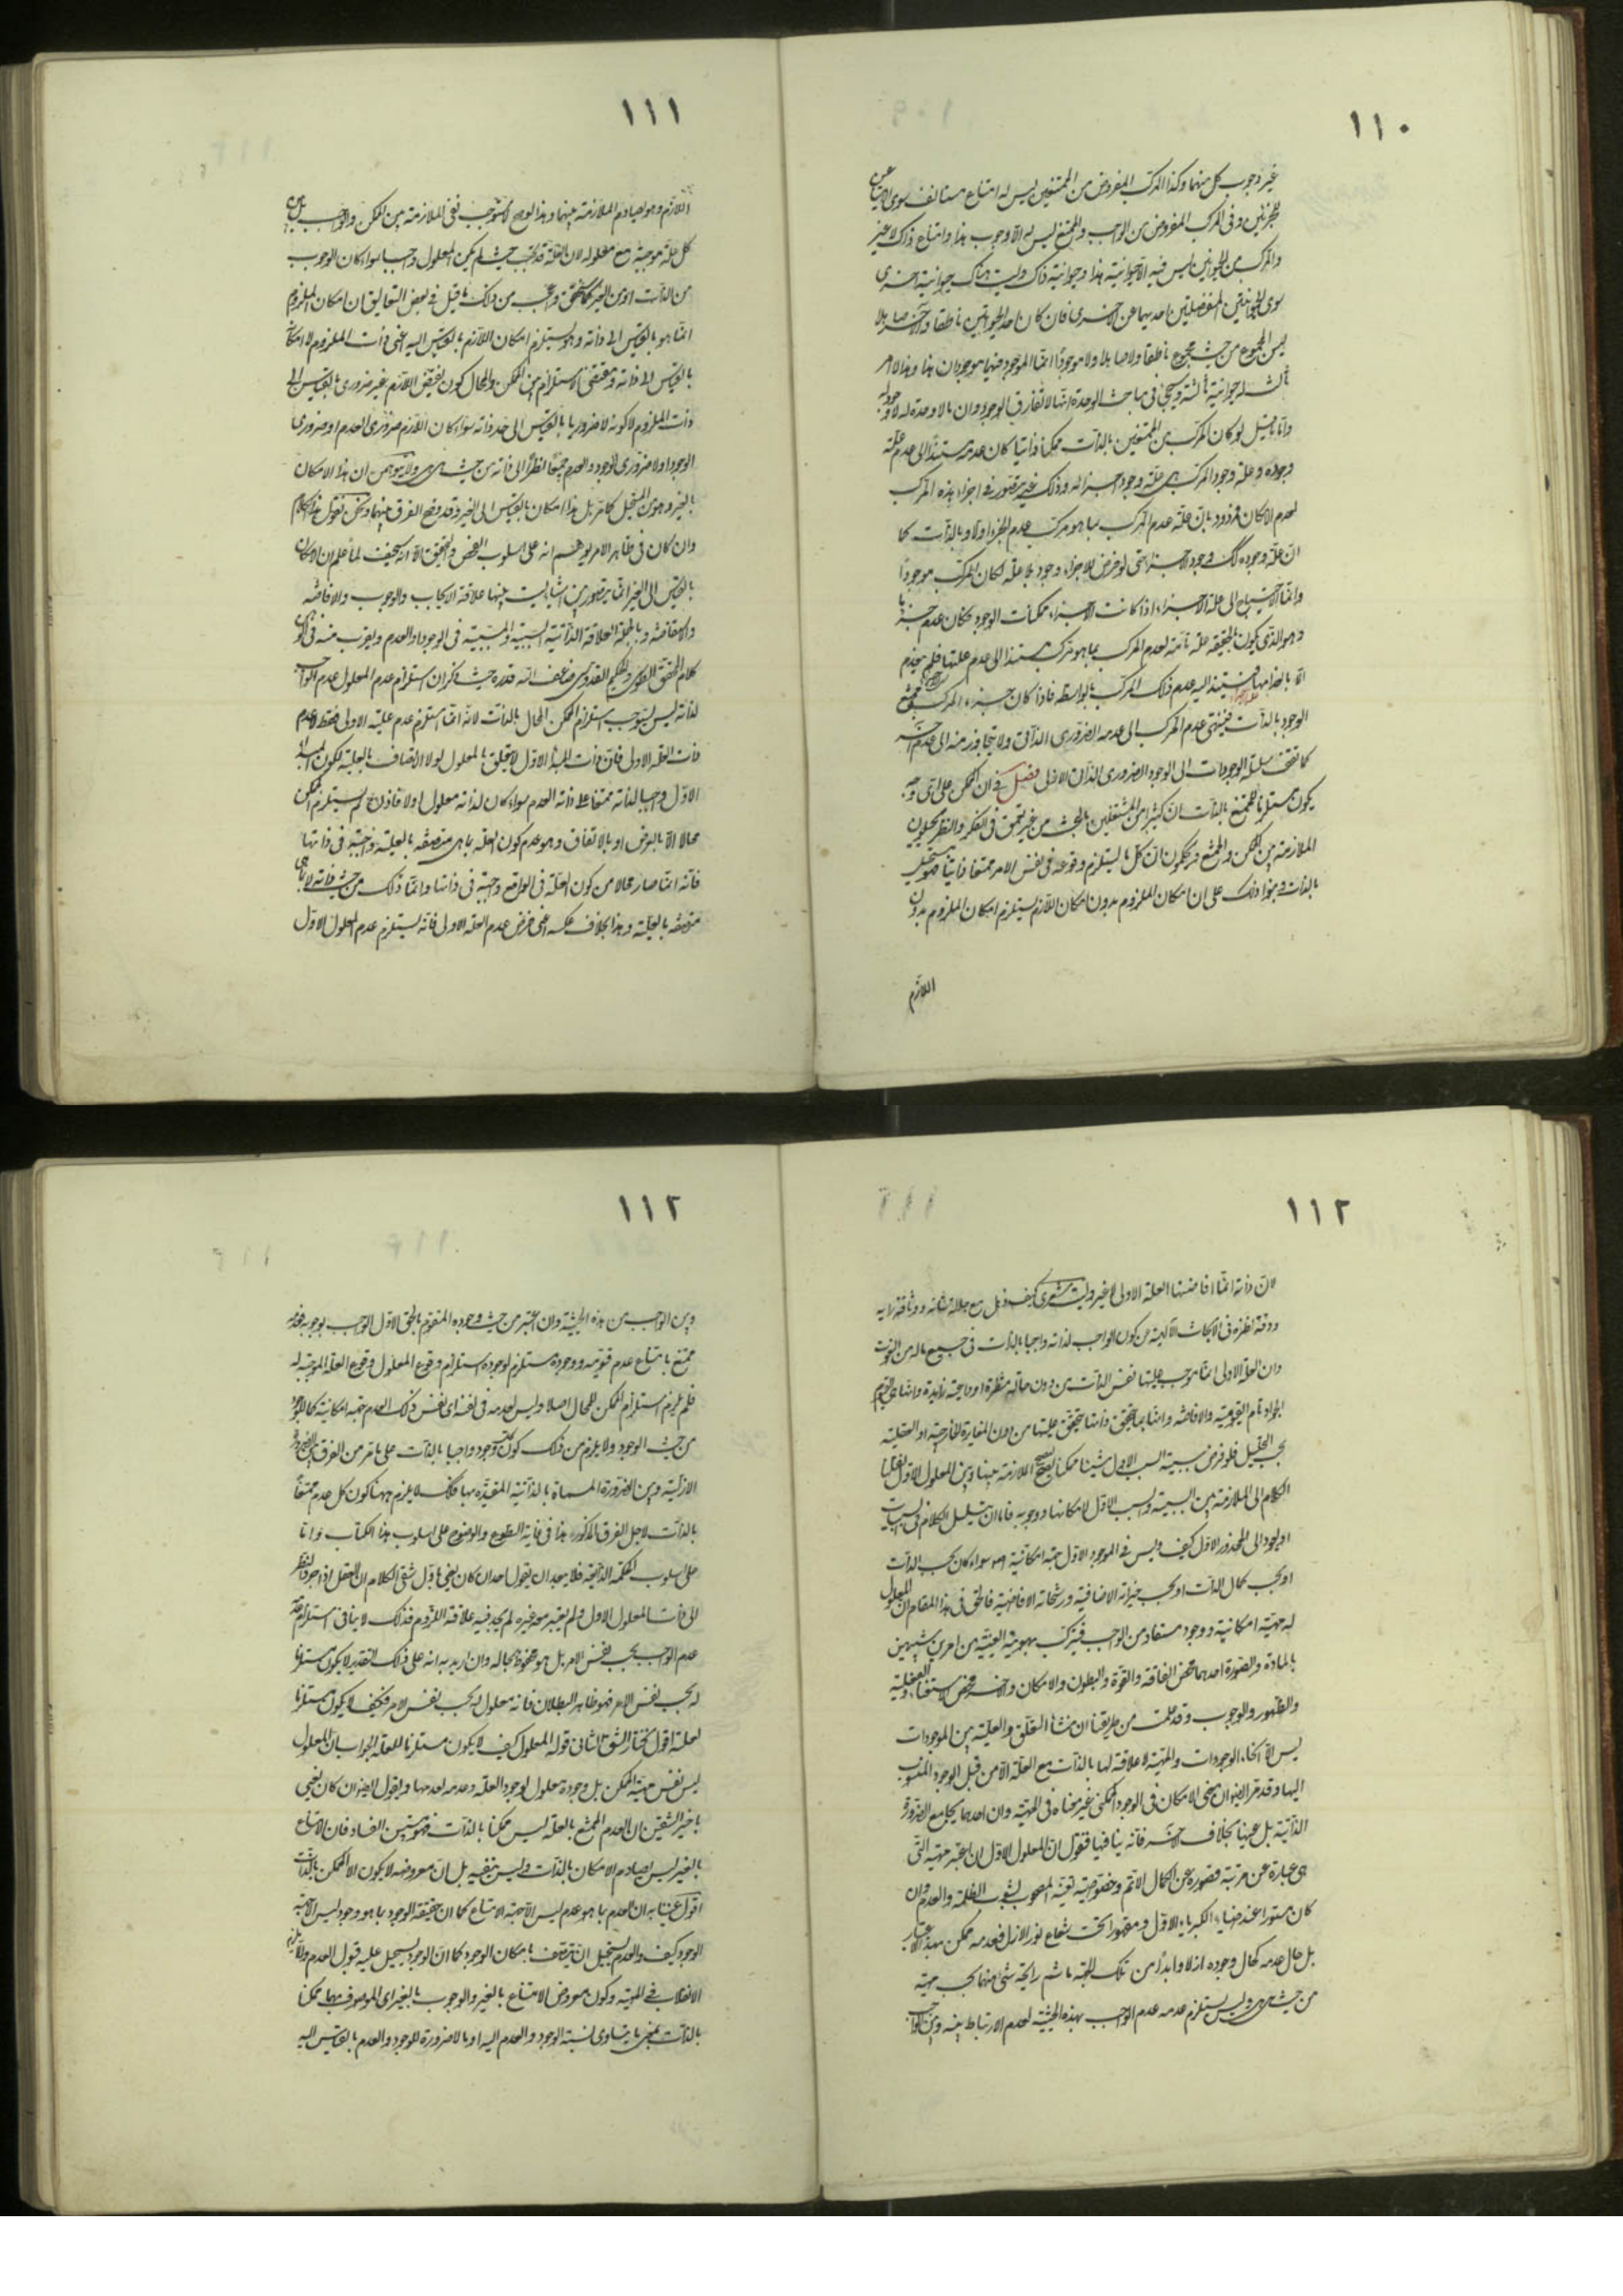 ١١٠
غير وجوب كل منهما وكذا المركب المفروض من الممتنعين ليس له امتناع مستأنف سوى
للجزئين وفى المركب المفروض من الواجب والممتنع ليس له الا وجوب هذا وامتناع ذاك لا غير
والمركب من الحيوانين ليس فيه الا حيوانية هذا وحيوانية ذاك وليست هناك حيوانية اخرى
سوى الحيوانيتين المنفصلتين احديهما عن الاخرى فان كان احد الحيوانين ناطقا والآخر صاهلا
ليس المجموع من حيث المجموع ناطقا ولا صاهلا ولا موجودا انما الموجود فيهما موجودان هذا وهذا لا امر
ثالث له حيوانية ثالثة وسيجئ فى مباحث الوحدة انها لا تفارق الوجود وان ما لا وحدة له لا وجود له
واما ما قيل لو كان المركب من الممتنعين بالذات ممكنا ذاتيا كان عدمه مستندا الى عدم علة
وجوده وعلة وجود المركب هى علة وجود اجزائه وذلك غير متصور فى اجزاء هذه المركب
لعدم الامكان فمردود بان علة عدم المركب بما هو مركب عدم الجزء اولا وبالذات كما
ان علة وجوده وجود الاجزاء حتى لو فرض للاجزاء وجود بلا علة لكان المركب موجودا
وانما الاحتياج الى علة الاجزاء اذا كانت الاجزاء ممكنات الوجود فكان عدم جزء ما
وهو الذى يكون بالحقيقة علة تامة لعدم المركب بما هو مركب مستندا الى عدم علتها فلم ينعدم
الا بانعدامها فيستند اليه عدم ذلك المركب بالواسطة فاذا كان جزء المركب ممتنع
الوجود بالذات فينتهى عدم المركب الى عدمه الضرورى الذاتى ولا يتجاوز منه الى عدم آخر
كما تقف سلسلة الوجودات الى الوجود الضرورى الذاتى الازلى فصل فى ان الممكن على اى وجه
يكون مستلزما للممتنع بالذات ان كثيرا من المشتغلين بالبحث من غير تعمق فى الفكر والنظر يحيلون
الملازمة بين الممكن والممتنع ويحكمون ان كل ما يستلزم وقوعه فى نفس الامر ممتنعا ذاتيا فهو مستحيل
بالذات وبنوا ذلك على ان امكان الملزوم بدون امكان اللازم يستلزم امكان الملزوم بدون
اللازم
١١١
اللازم وهو يصادم الملازمة بينهما وهذا لو صح لاستوجب نفى الملازمة بين الممكن والواجب
كل علة موجبة مع معلوله لان العلة قد تجب حيث لم يكن المعلول واجبا سواء كان الوجوب
من الذات او من الغير واعجب من ذلك ما قيل فى بعض التعاليق ان امكان الملزوم
انما هو بالقياس الى ذاته وهو يستلزم امكان اللازم بالقياس اليه اعنى ذات الملزوم لا امكانه
بالقياس الى ذاته ومقتضى الاستلزام بين الممكن والمحال كون نقيض اللازم غير ضرورى بالقياس الى
ذات الملزوم لا كونه لا ضروريا بالقياس الى حد ذاته سواء كان اللازم ضرورى العدم او ضرورى
الوجود او لا ضرورى الوجود والعدم جميعا نظرا الى ذاته من حيث هى هى ولا يتوهمن ان هذا الامكان
بالغير وهو من المستحيل كما مر بل هذا امكان بالقياس الى الغير وقد وضح الفرق بينهما ونحن نقول هذا الكلام
وان كان فى ظاهر الامر يوهم انه على اسلوب الفحص والتحقيق الا انه سخيف لما علم ان الامكان
بالقياس الى الغير انما يتصور بين اشياء ليست بينها علاقة الايجاب والوجوب والافاضة
والاستفاضة وبالجملة العلاقة الذاتية السببية والمسببية فى الوجود او العدم ويقرب منه
كلام المحقق الطوسى والحكيم القدوسى قدره حيث ذكر ان استلزام عدم المعلول عدم الواجب
لذاته ليس يستوجب استلزام الممكن المحال بالذات لانه انما استلزم عدم علية الاولى فقط لا عدم
ذات العلة الاولى فان ذات المبدأ الاول لا يتعلق بالمعلول لولا الاتصاف بالعلية لكون المبدأ
الاول واجبا لذاته ممتنعا على ذاته العدم سواء كان لذاته معلول او لا فاذن لم يستلزم الممكن
محالا الا بالعرض او بالاتفاق وهو عدم كون العلة بما هى متصفة بالعلية واجبة فى ذاتها
فانه انما صار محالا من كون العلة فى الواقع واجبة فى ذاتها وانما ذلك من حيث ذاته لا بما هى
متصفة بالعلية وهذا بخلاف عكسه اعنى فرض عدم العلة الاولى فانه يستلزم عدم المعلول الاول
١١٢
لان ذاته انما افاضتها العلة الاولى لا غير وليت شعرى كيف ذهل مع جلالة شانه ووثاقة رايه
ودقة نظره فى الابحاث الالهية من كون الواجب لذاته واجبا بالذات فى جميع ما له من النعوت
وان العلة الاولى انما يوجب عليتها نفس الذات من دون حالة منتظرة او داعية زايدة وانها
الجواد تام القيومية والافاضة وانها بما يتحقق ذاتها يتحقق عليتها من دون المغايرة الخارجية او العقلية
بحسب التحليل فلو فرض سببية السبب الاول شيئا ممكنا ليصح اللازمة بينها وبين المعلول الاول
الكلام الى الملازمة بين السببية والسبب الاول لامكانها ووجوبه فاما ان يتسلسل الكلام فى السببيات
او يعود الى المحذور الاول كيف وليس فى الموجود الاول جهة امكانية سواء كان بحسب الذات
او بحسب كمال الذات او بحسب خيراته الاضافية ورشحاته الافاضية فالحق فى هذا المقام ان المعلول
له جهة امكانية ووجود مستفاد من الواجب فيتركب بهويته العينية من امرين شبيهين
بالمادة والصورة احدهما محض الفاقة والقوة والبطون والامكان والآخر محض الاستغناء والفعلية
والظهور والوجوب وقد علمت من طريقنا ان منشأ التعلق والعلية بين الموجودات
ليس الا انحاء الوجودات والمهية لا علاقة لها بالذات مع العلة الا من قبل الوجود المنسوب
اليها وقد مر ايضا ان معنى الامكان فى الوجود الممكنى غير معناه فى المهية وان احدهما يجامع الضرورة
الذاتية بل عينها بخلاف الآخر فانه ينافيها فنقول ان المعلول الاول ان اعتبر مهيته التى
هى عبارة عن مرتبة قصوره عن الكمال الاتم وخصوصية تعينه المصحوب لشوب الظلمة والعدم وان
كان مستورا عند ضياء الكبرياء الاول ومقهورا تحت شعاع نور الازل فعدمه ممكن بهذا الاعتبار
بل حال عدمه كحال وجوده ازلا وابدا من تلك الجهة ما شم رائحة شئ منهما بحسب مهية
من حيث هى هى وليس يستلزم عدمه عدم الواجب بهذه الحيثية لعدم الارتباط بينه وبين الواجب
١١٢
وبين الواجب من هذه الحيثية وان اعتبر من حيث وجوده المتقوم بالحق الاول الواجب بوجوبه فعدمه
ممتنع بامتناع عدم قيومه ووجوده مستلزم لوجوده استلزام وقوع المعلول وقوع العلة الموجبة له
فلم يلزم استلزام الممكن للمحال اصلا وليس لعدمه فى نفسه اى نفس ذلك العدم جهة امكانية كما للوجود
من حيث الوجود ولا يلزم من ذلك كون كل وجود واجبا بالذات على ما مر من الفرق بين الضرورة
الازلية وبين الضرورة المسماة بالذاتية المقيدة بها فكذلك لا يلزم ههنا كون كل عدم ممتنعا
بالذات لاجل الفرق المذكور هذا فى غاية السطوع والوضوح على اسلوب هذا الكتاب واما
على اسلوب الحكمة الذائعة فلا يبعد ان يقول احد ان كان يعنى باول شقى الكلام ان العقل اذا جرد النظر
الى ذات المعلول الاول ولم يعتبر معه غيره لم يجد فيه علاقة اللزوم فذلك لا ينافى استلزام عدمه
عدم الواجب بحسب نفس الامر بل هو محفوظ بحاله وان اريد به انه على ذلك التقدير لا يكون مستلزما
له بحسب نفس الامر فهو ظاهر البطلان فانه معلول له بحسب نفس الامر فكيف لا يكون مستلزما
لعلته اقول نختار الشق الثانى قوله المعلول كيف لا يكون مستلزما للعلة الجواب ان المعلول
ليس نفس مهية الممكن بل وجوده معلول لوجود العلة وعدمه لعدمها ويقول ايضا ان كان يعنى
باخير الشقين ان العدم الممتنع بالعلة ليس ممكنا بالذات فهو مستبين الفساد فان الامتناع
بالغير ليس يصادم الامكان بالذات وليس ينفيه بل ان معروضه لا يكون الا الممكن بالذات
اقول عنينا به ان العدم بما هو عدم ليس الا جهة الامتناع كما ان حقيقة الوجود بما هو وجود ليس الا جهة
الوجود كيف والعدم يستحيل ان يتصف بامكان الوجود كما ان الوجود يستحيل عليه قبول العدم
الانقلاب فى المهية وكون معروض الامتناع بالغير والوجوب بالغير اى الموصوف بهما ممكنا
بالذات بمعنى ما يتساوى نسبة الوجود والعدم اليه او ما لا ضرورة للوجود والعدم بالقياس اليه